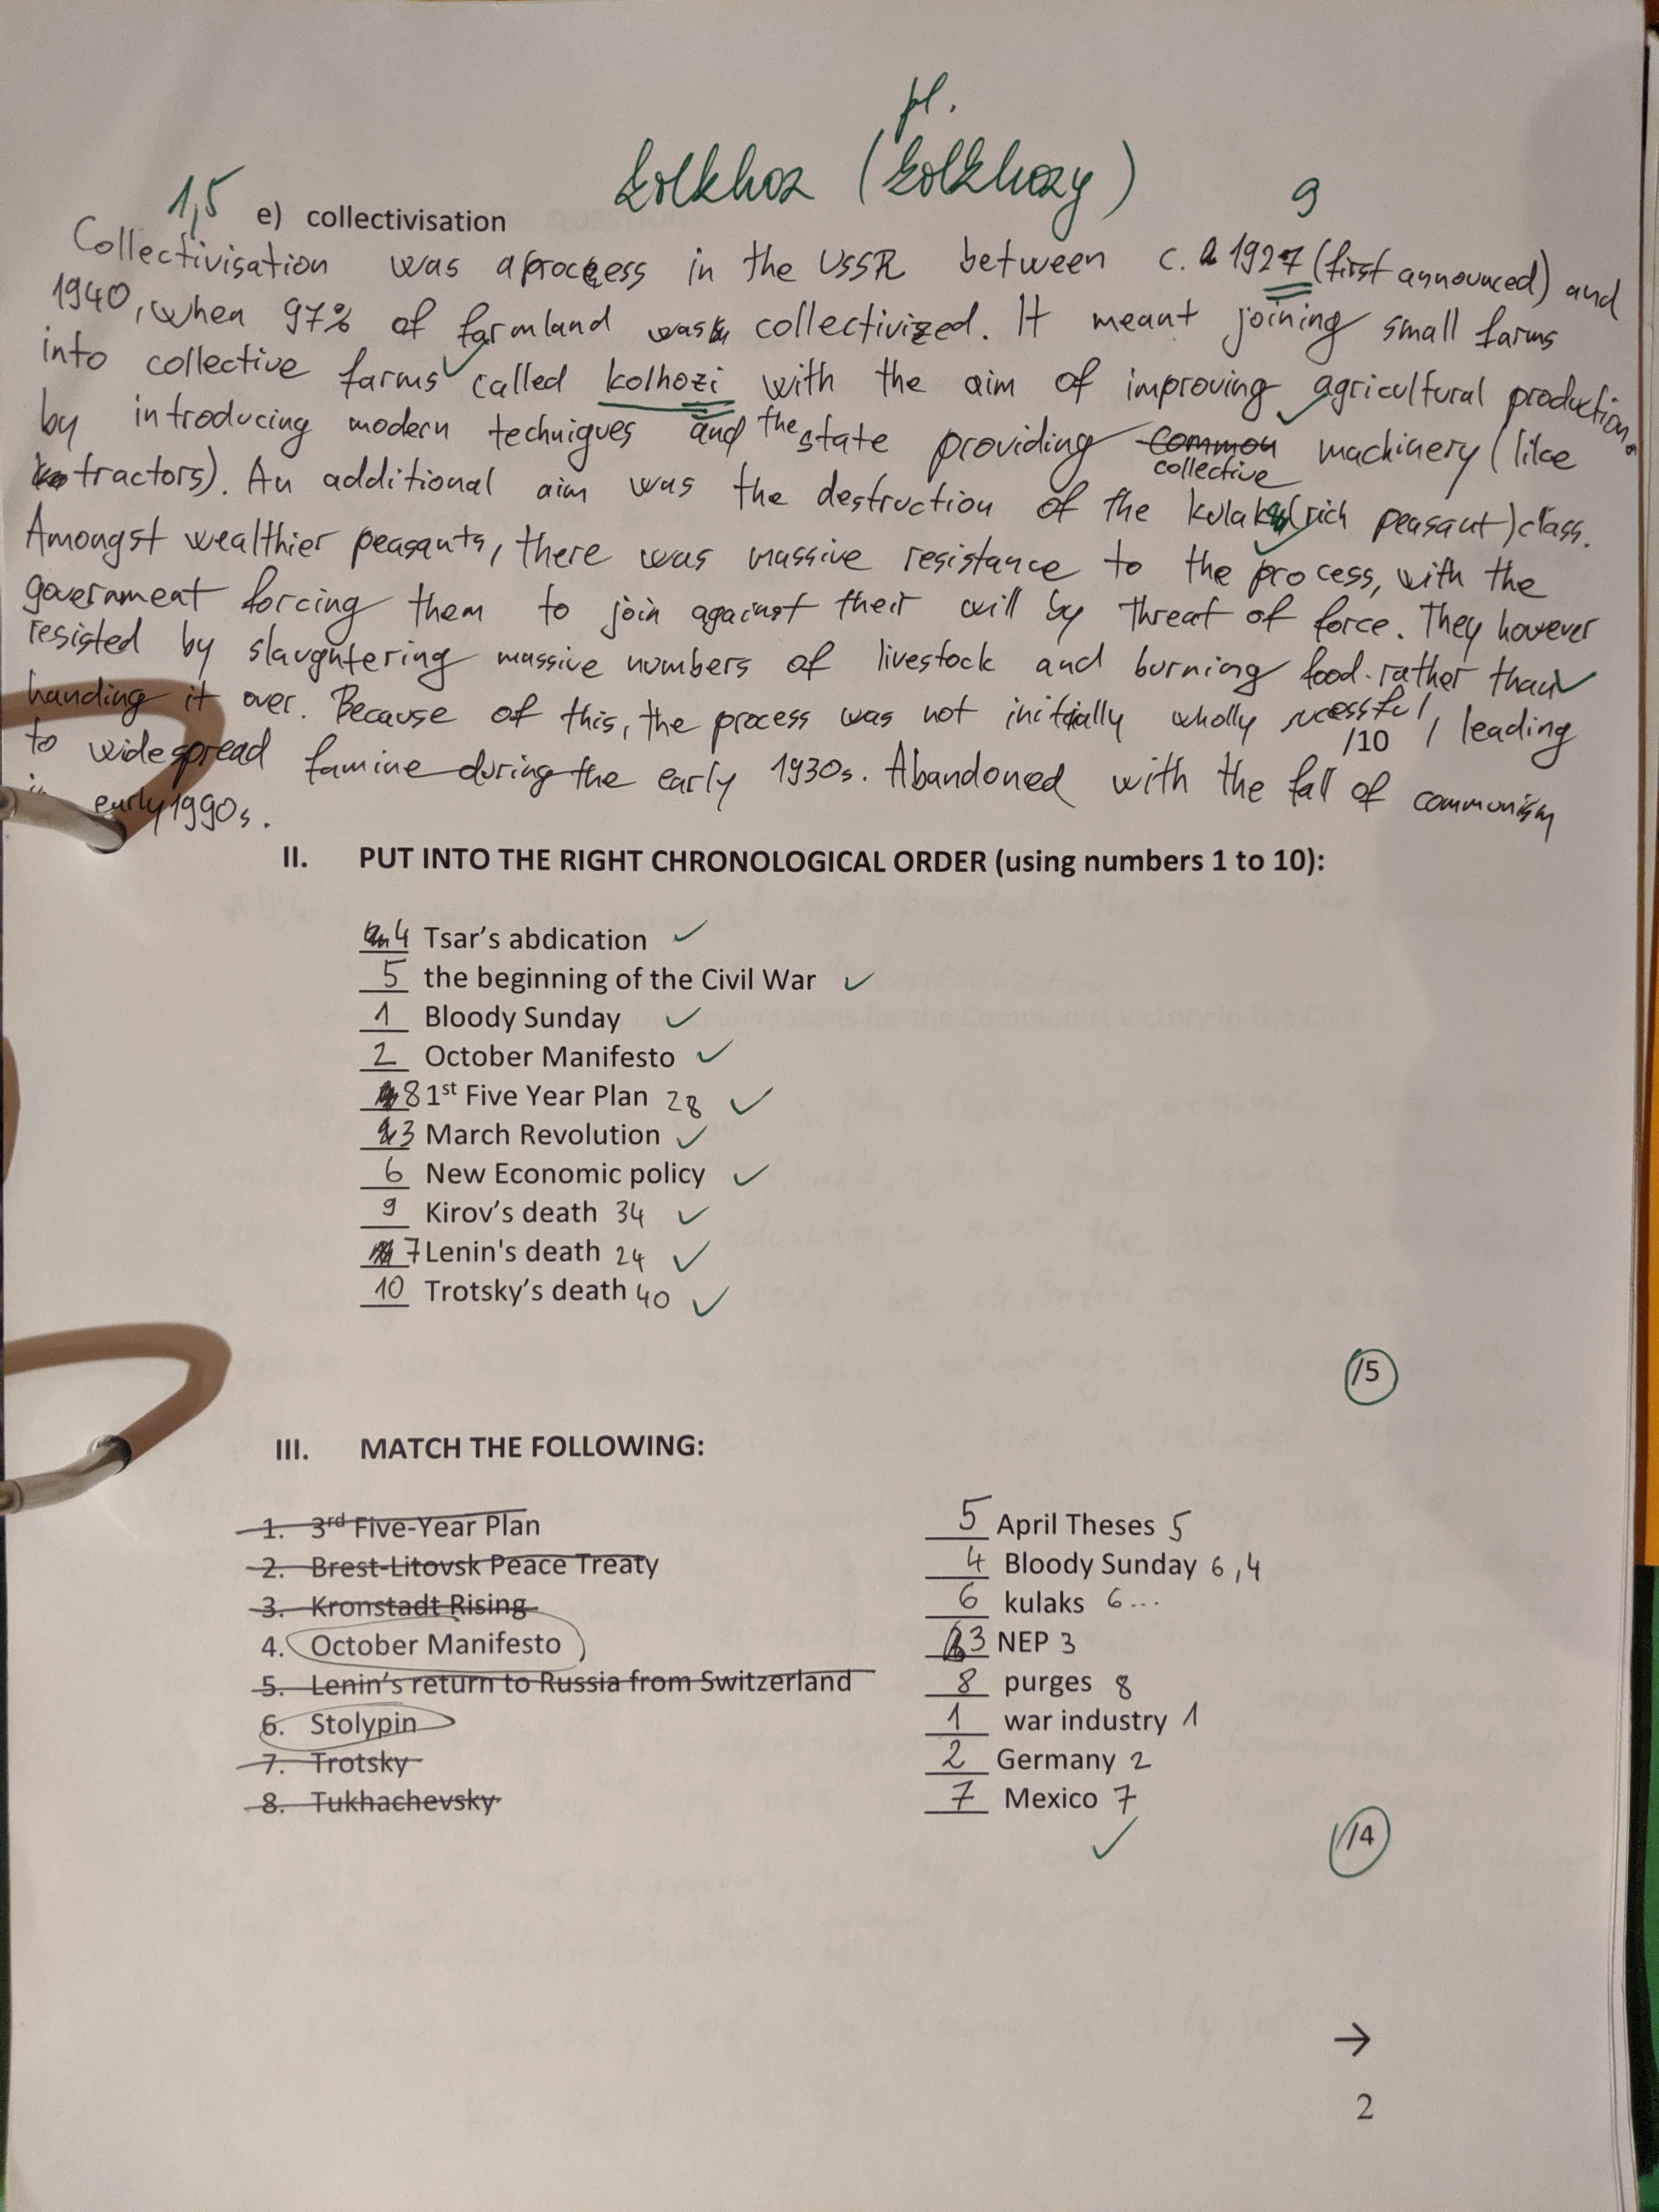 pl.
kolkhoz (kolkhozy)
1,5 e) collectivisation
9
Collectivisation was a process in the USSR between c. 1927 (first announced) and
1940, when 97% of farmland was collectivized. It meant joining small farms
into collective farms called kolhozi with the aim of improving agricultural production
by introducing modern techniques and the state providing common machinery (like
collective
tractors). An additional aim was the destruction of the kulak (rich peasant) class.
Amongst wealthier peasants, there was massive resistance to the process, with the
government forcing them to join against their will by threat of force. They however
resisted by slaughtering massive numbers of livestock and burning food rather than
handing it over. Because of this, the process was not initially wholly sucessful, leading
/10
to widespread famine during the early 1930s. Abandoned with the fall of communism
in early 1990s.
II. PUT INTO THE RIGHT CHRONOLOGICAL ORDER (using numbers 1 to 10):
4 Tsar's abdication
5 the beginning of the Civil War
1 Bloody Sunday
2 October Manifesto
8 1st Five Year Plan 28
3 March Revolution
6 New Economic policy
9 Kirov's death 34
7 Lenin's death 24
10 Trotsky's death 40
/5
III. MATCH THE FOLLOWING:
1. 3rd Five-Year Plan
2. Brest-Litovsk Peace Treaty
3. Kronstadt Rising
4. October Manifesto
5. Lenin's return to Russia from Switzerland
6. Stolypin
7. Trotsky
8. Tukhachevsky
5 April Theses 5
4 Bloody Sunday 6,4
6 kulaks 6...
3 NEP 3
8 purges 8
1 war industry 1
2 Germany 2
7 Mexico 7
/4
→
2